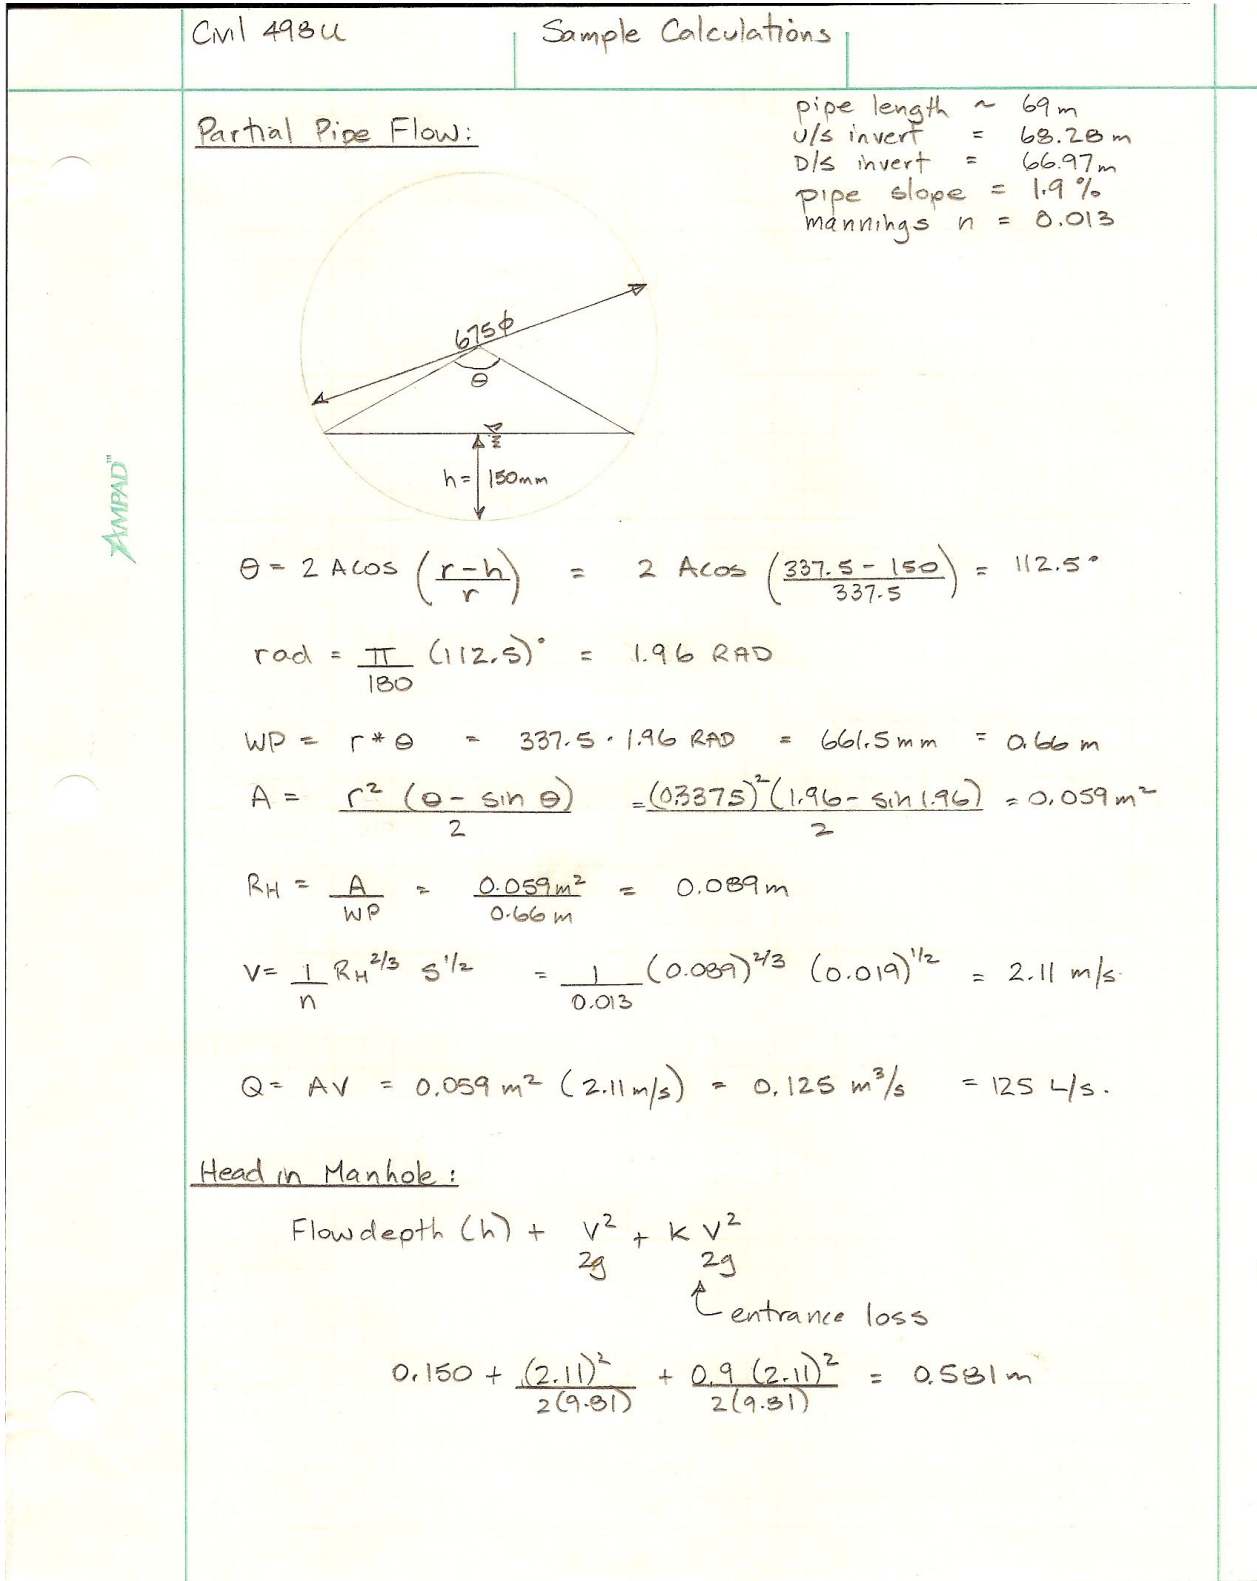 Civil 498U
Sample Calculations
Partial Pipe Flow:
pipe length ~ 69 m
U/S invert = 68.28 m
D/S invert = 66.97 m
pipe slope = 1.9 %
mannings n = 0.013
675 ϕ
θ
h = 150mm
AMPAD™
θ = 2 Acos ( (r - h) / r ) = 2 Acos ( (337.5 - 150) / 337.5 ) = 112.5°
rad = π/180 (112.5)° = 1.96 RAD
WP = r * θ = 337.5 · 1.96 RAD = 661.5 mm = 0.66 m
A = r² (θ - sin θ) / 2 = (0.3375)² (1.96 - sin 1.96) / 2 = 0.059 m²
RH = A / WP = 0.059 m² / 0.66 m = 0.089 m
V = 1/n RH^2/3 S^1/2 = 1/0.013 (0.089)^2/3 (0.019)^1/2 = 2.11 m/s.
Q = AV = 0.059 m² (2.11 m/s) = 0.125 m³/s = 125 L/s.
Head in Manhole:
Flow depth (h) + V²/2g + K V²/2g
entrance loss
0.150 + (2.11)² / 2(9.81) + 0.9 (2.11)² / 2(9.81) = 0.581 m